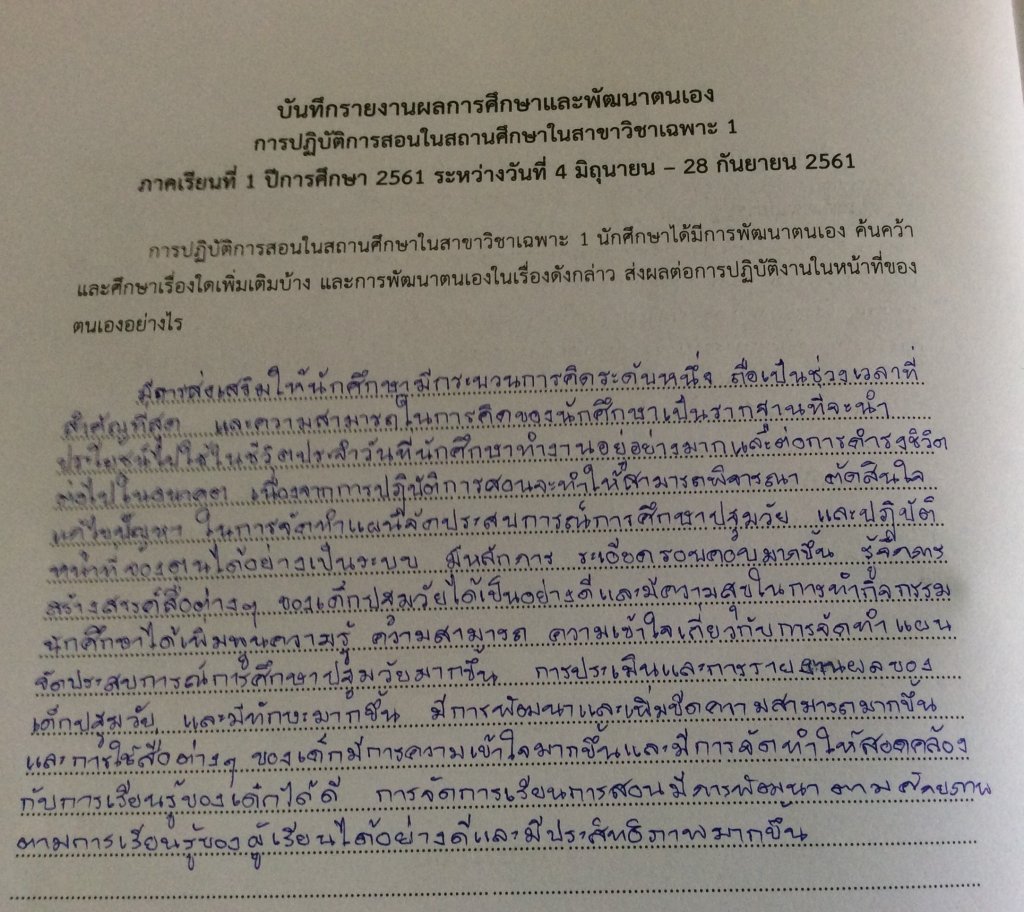 บันทึกรายงานผลการศึกษาและพัฒนาตนเอง
การปฏิบัติการสอนในสถานศึกษาในสาขาวิชาเฉพาะ 1
ภาคเรียนที่ 1 ปีการศึกษา 2561 ระหว่างวันที่ 4 มิถุนายน – 28 กันยายน 2561
การปฏิบัติการสอนในสถานศึกษาในสาขาวิชาเฉพาะ 1 นักศึกษาได้มีการพัฒนาตนเอง ค้นคว้า
และศึกษาเรื่องใดเพิ่มเติมบ้าง และการพัฒนาตนเองในเรื่องดังกล่าว ส่งผลต่อการปฏิบัติงานในหน้าที่ของ
ตนเองอย่างไร
มีการส่งเสริมให้นักศึกษามีกระบวนการคิดระดับหนึ่ง ถือเป็นช่วงเวลาที่
สำคัญที่สุด และความสามารถในการคิดของนักศึกษาเป็นรากฐานที่จะนำ
ประโยชน์ไปใช้ในชีวิตประจำวันที่นักศึกษาทำงานอยู่อย่างมากและต่อการดำรงชีวิต
ต่อไปในอนาคต เนื่องจากการปฏิบัติการสอนจะทำให้สามารถพิจารณา ตัดสินใจ
แก้ไขปัญหา ในการจัดทำแผนจัดประสบการณ์การศึกษาปฐมวัย และปฏิบัติ
หน้าที่ของตนได้อย่างเป็นระบบ มีหลักการ ระเอียดรอบคอบมากขึ้น รู้จักการ
สร้างสรรค์สื่อต่างๆ ของเด็กปฐมวัยได้เป็นอย่างดีและมีความสุขในการทำกิจกรรม
นักศึกษาได้เพิ่มพูนความรู้ ความสามารถ ความเข้าใจเกี่ยวกับการจัดทำแผน
จัดประสบการณ์การศึกษาปฐมวัยมากขึ้น การประเมินและการรายงานผลของ
เด็กปฐมวัย และมีทักษะมากขึ้น มีการพัฒนาและเพิ่มขีดความสามารถมากขึ้น
และการใช้สื่อต่างๆ ของเด็กมีการความเข้าใจมากขึ้นและมีการจัดทำให้สอดคล้อง
กับการเรียนรู้ของเด็กได้ดี การจัดการเรียนการสอนมีการพัฒนา ตามศักยภาพ
ตามการเรียนรู้ของผู้เรียนได้อย่างดีและมีประสิทธิภาพมากขึ้น